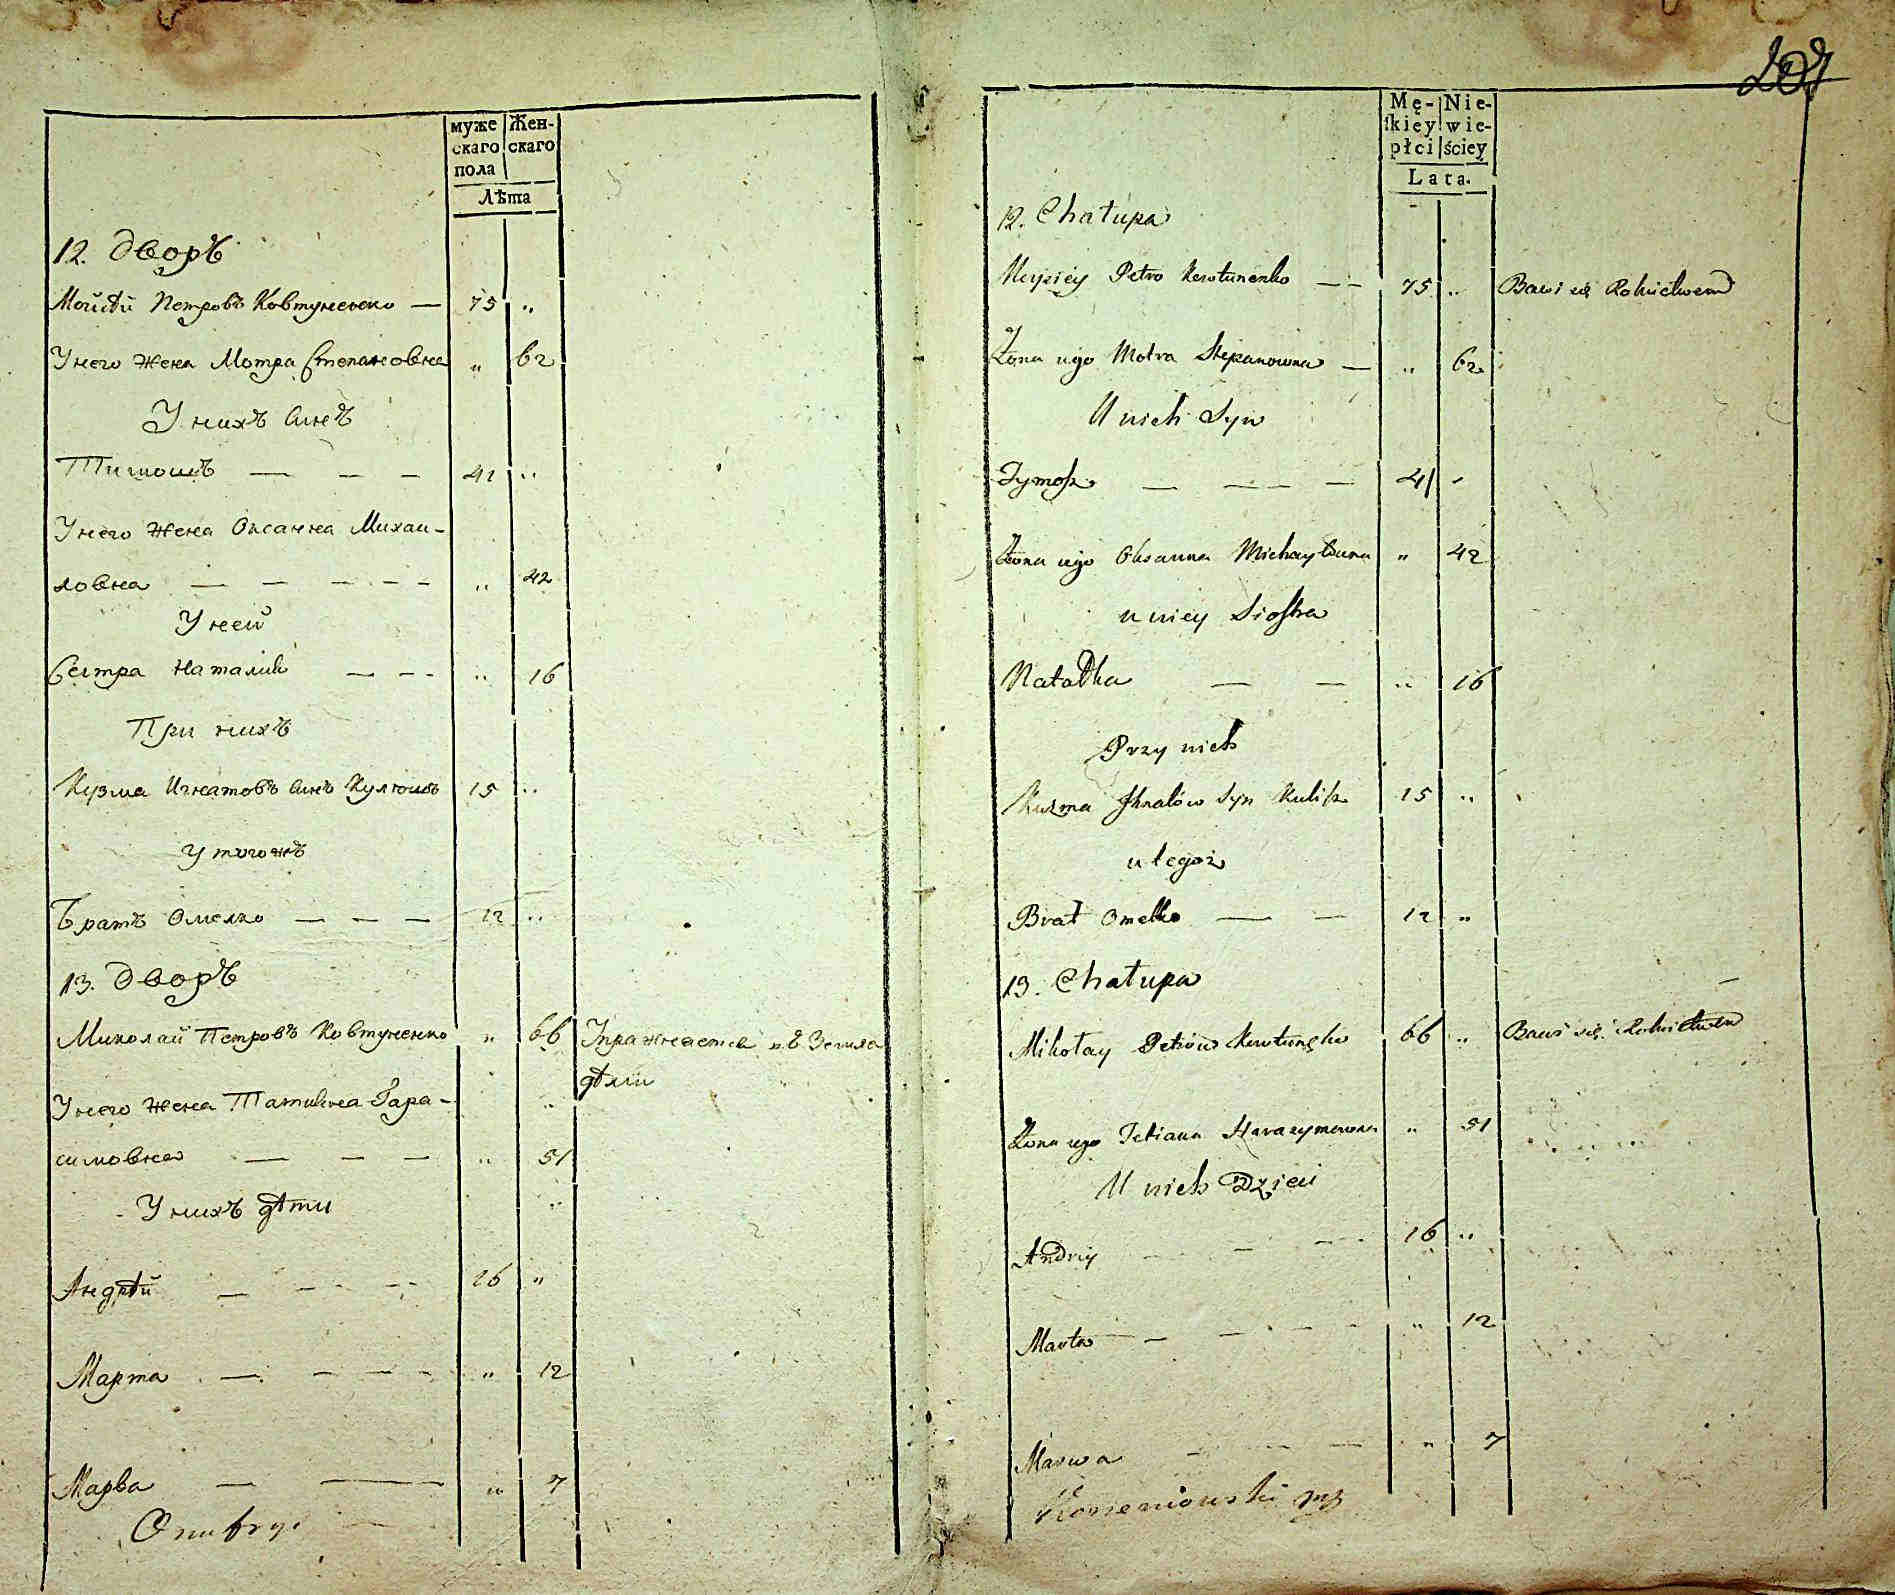 муже Жен-
скаго скаго
пола
Лѣта
12. Дворъ
Мойсѣй Петровъ Ковтуненко — 75 „
У него жена Мотра Степановна „ 62
У нихъ синъ
Тимошъ — — — 41 „
У него жена Оксанна Михаи-
ловна — — — — — „ 42
У неей
Сестра Наталия — — - „ 16
При нихъ
Кузма Игнатовъ синъ 15 „
у тогожъ
Братъ Омелко — — — 12 „
13. Дворъ
Миколай Петровъ Ковтуненко „ 66 Упражняется въ Земледѣлии
У него жена Татияна Гара-
симовна — — — „ 51
У нихъ дѣти
Андрѣй — — — 16 „
Марта — — — — „ 12
Марва — — „ 7
Onufry
207
Mę- Nie-
ſkiey wie-
płci ściey
Lata.
12. Chałupa
Moysiey Petro Kowtunenko — — 75 „ Bawi się Rolnictwem
Żona iego Motra Stepanowna — „ 62
U nich Syn
Tymosz — — — — 41 „
Żona iego Oksanna Michayłowna „ 42
u niey Siostra
Natalka — — „ 16
Przy nich
Kuzma Ihnatów Syn 15 „
u tegoż
Brat Omelko — — 12 „
13. Chałupa
Mikołay Petrów 66 „ Bawi się Rolnictwem
Żona iego Tetiana Harasymowna „ 51
U nich Dzieci
Andriy — — — 16 „
Marta — — — — „ 12
Marwa — — — „ 7